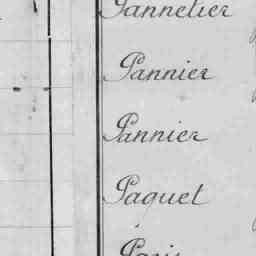 Pannetier
Pannier
Pannier
Paquet
Paris